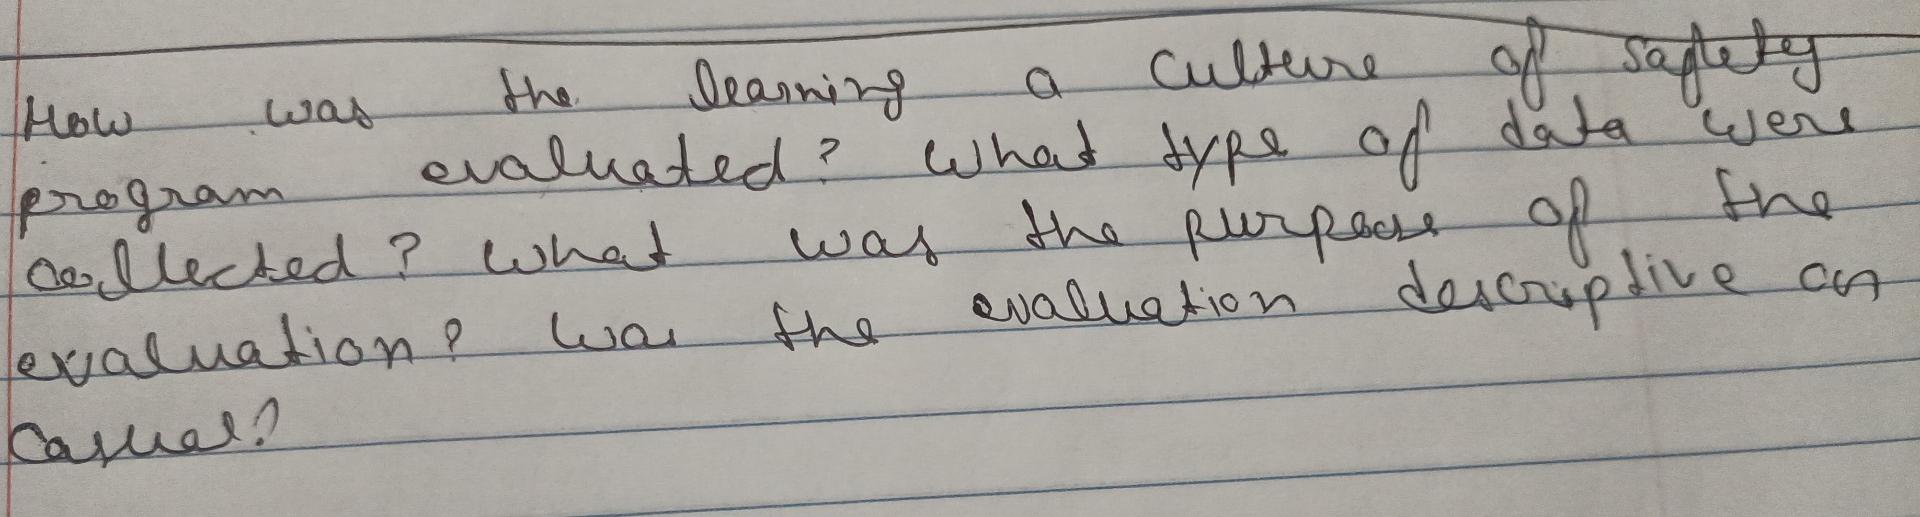 How was the learning a culture of safety
program evaluated? What type of data were
collected? What was the purpose of the
evaluation? Was the evaluation descriptive or
Casual?